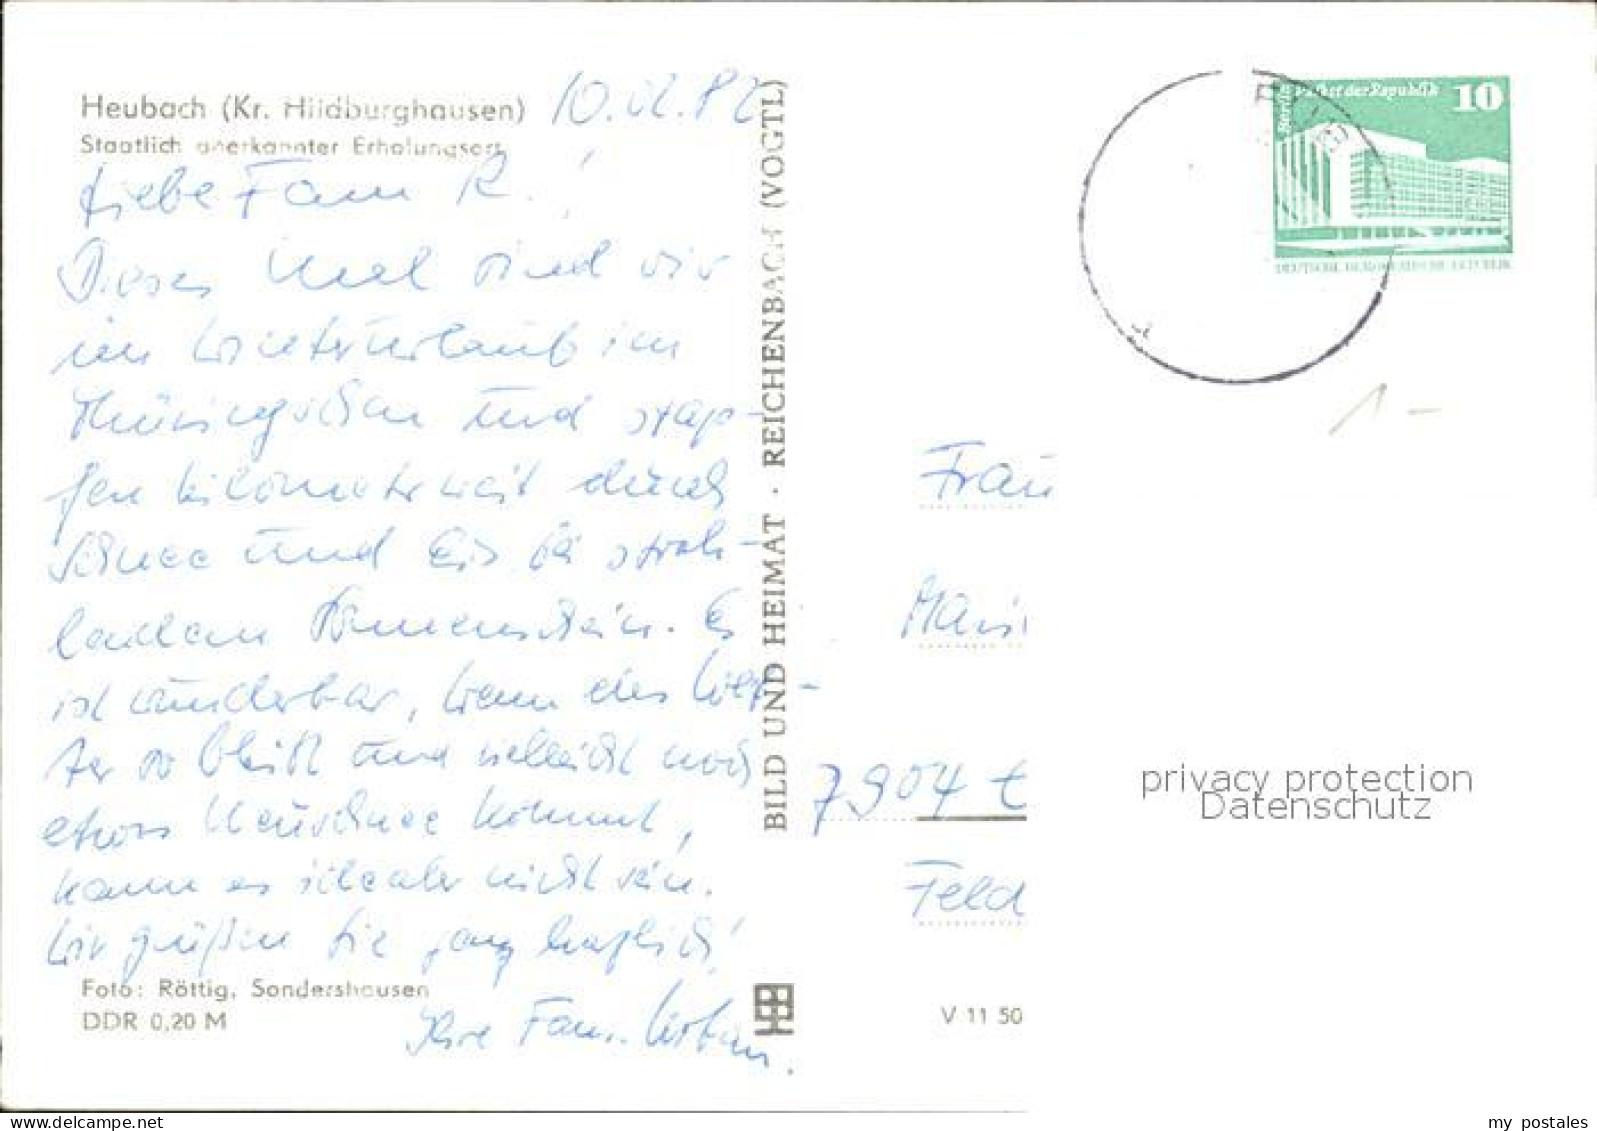 Heubach (Kr. Hildburghausen) 10.12.82
Staatlich anerkannter Erholungsort
Liebe Fam R.!
Dieses Mal sind wir
im Winterurlaub im
Thüringischen und stap-
fen kilometerweit durch
Schnee und Eis bei strah-
lendem Sonnenschein. Es
ist wunderbar, wenn das Wet-
ter so bleibt und vielleicht noch
etwas Neuschnee kommt,
kann es idealer nicht sein.
Wir grüßen Sie ganz herzlich!
Ihre Fam. Urban.
Foto: Röttig, Sondershausen
DDR 0,20 M
BILD UND HEIMAT · REICHENBACH (VOGTL)
V 11 50
Berlin Palast der Republik 10
DEUTSCHE DEMOKRATISCHE REPUBLIK
1-
Frau
7904
Feld
privacy protection
Datenschutz
my postales